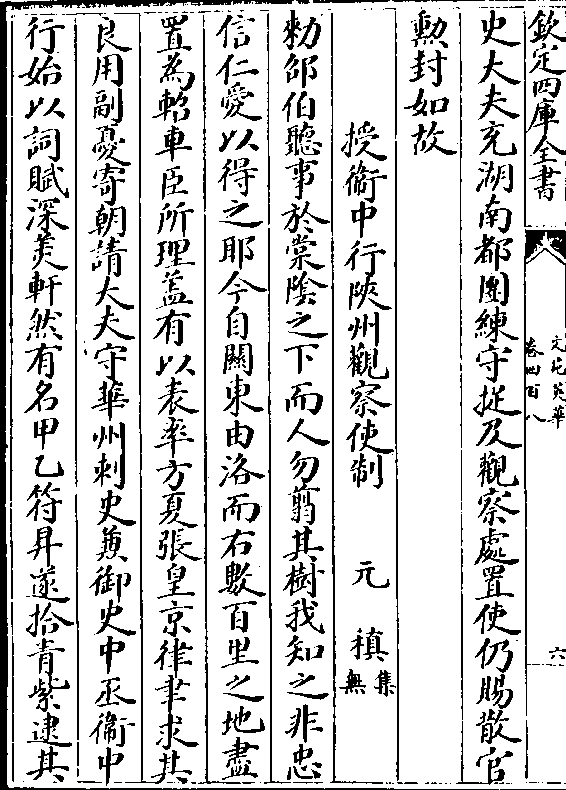 欽定四庫全書
文苑英華
卷四百八
六
史大夫充湖南都團練守捉及觀察處置使仍賜散官
勲封如故
授衞中行陜州觀察使制　元稹 集無
勅邵伯聽事於棠陰之下而人勿翦其樹我知之非忠
信仁愛以得之耶今自關東由洛而右數百里之地盡
置為軺車臣所理葢有以表率方夏張皇京律聿求其
良用副憂寄朝請大夫守華州刺史兼御史中丞衞中
行始以詞賦深美軒然有名甲乙符昇遂拾青紫逮其